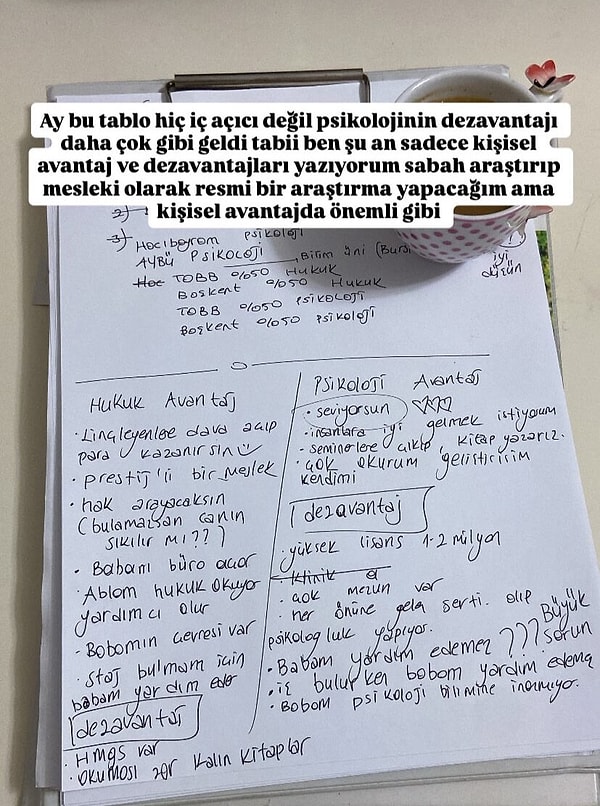 Ay bu tablo hiç iç açıcı değil psikolojinin dezavantajı
daha çok gibi geldi tabii ben şu an sadece kişisel
avantaj ve dezavantajları yazıyorum sabah araştırıp
mesleki olarak resmi bir araştırma yapacağım ama
kişisel avantajda önemli gibi
2)
3) Hacıbayram psikoloji
AYBÜ PSİKOLOJİ Bilim üni (Burs
iyi
düşün
Hac TOBB %50 Hukuk
Başkent %50 Hukuk
TOBB %50 PSİKOLOJİ
Başkent %50 PSİKOLOJİ
Hukuk Avantaj
• Linçleyenlere dava açıp
para kazanırsın
• prestij'li bir meslek
• hak arayacaksın
(bulamazsan canın
sıkılır mı??)
• Babam büro açar
• Ablam hukuk okuyor
yardımcı olur
• Babamın çevresi var
• Staj bulmam için
babam yardım eder
dezavantaj
• HMGS var
• Okuması zor kalın kitaplar
PSİKOLOJİ Avantaj
• seviyorsun
• insanlara iyi gelmek istiyorum
• seminerlere çıkıp, kitap yazarız.
• çok okurum geliştiririm
kendimi
dezavantaj
• yüksek lisans 1-2 milyon
• klinik
• çok mezun var
• her önüne gelen serti. alıp
psikologluk yapıyor.
• Babam yardım edemez ??? Büyük
sorun
• iş bulurken babam yardım edemez
• Babam psikoloji bilimine inanmıyor.